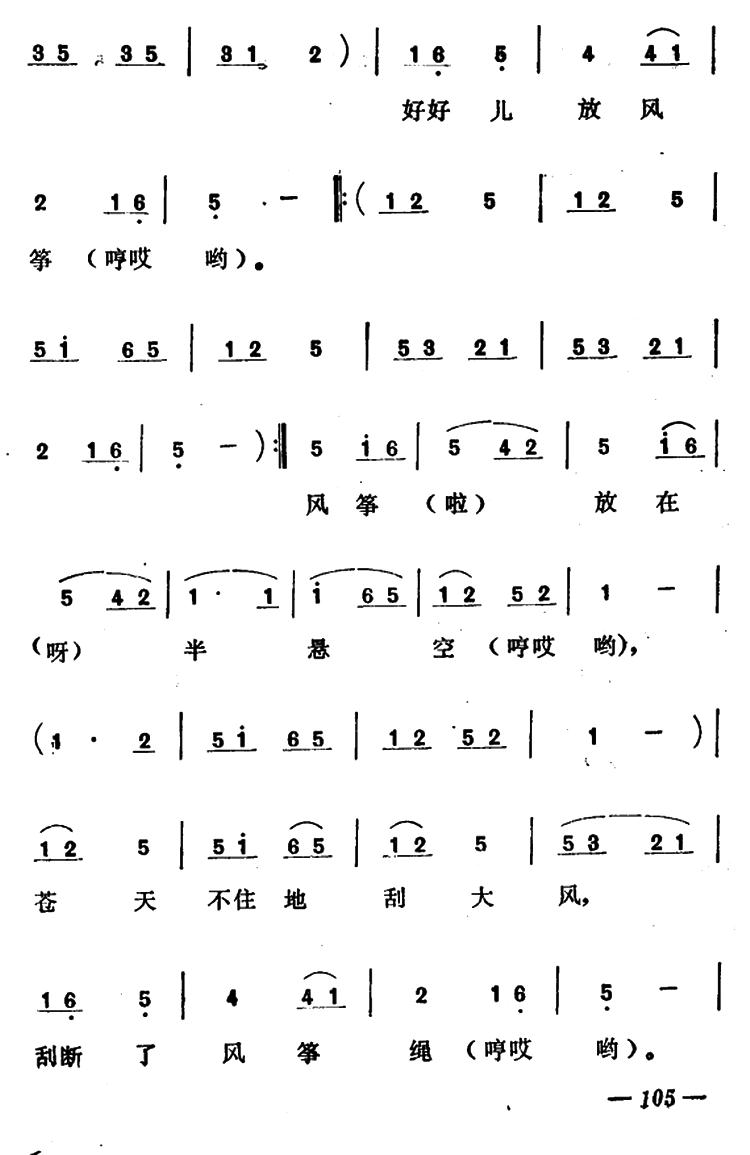 3 5 3 5 | 3 1 2 ) | 1 6̣ 5̣ | 4 4 1 |
好好 儿 放 风
2 1 6̣ | 5̣ － ‖: ( 1 2 5 | 1 2 5 |
筝 （哼哎 哟）。
5 i̇ 6 5 | 1 2 5 | 5 3 2 1 | 5 3 2 1 |
2 1 6̣ | 5̣ － ) :‖ 5 i̇ 6 | 5 4 2 | 5 i̇ 6 |
风 筝 （啦） 放 在
5 4 2 | 1 · 1 | i̇ 6 5 | 1 2 5 2 | 1 － |
（呀） 半 悬 空 （哼哎 哟），
( 1 · 2 | 5 i̇ 6 5 | 1 2 5 2 | 1 － ) |
1 2 5 | 5 i̇ 6 5 | 1 2 5 | 5 3 2 1 |
苍 天 不住 地 刮 大 风，
1 6̣ 5̣ | 4 4 1 | 2 1 6̣ | 5̣ － |
刮断 了 风 筝 绳 （哼哎 哟）。
— 105 —